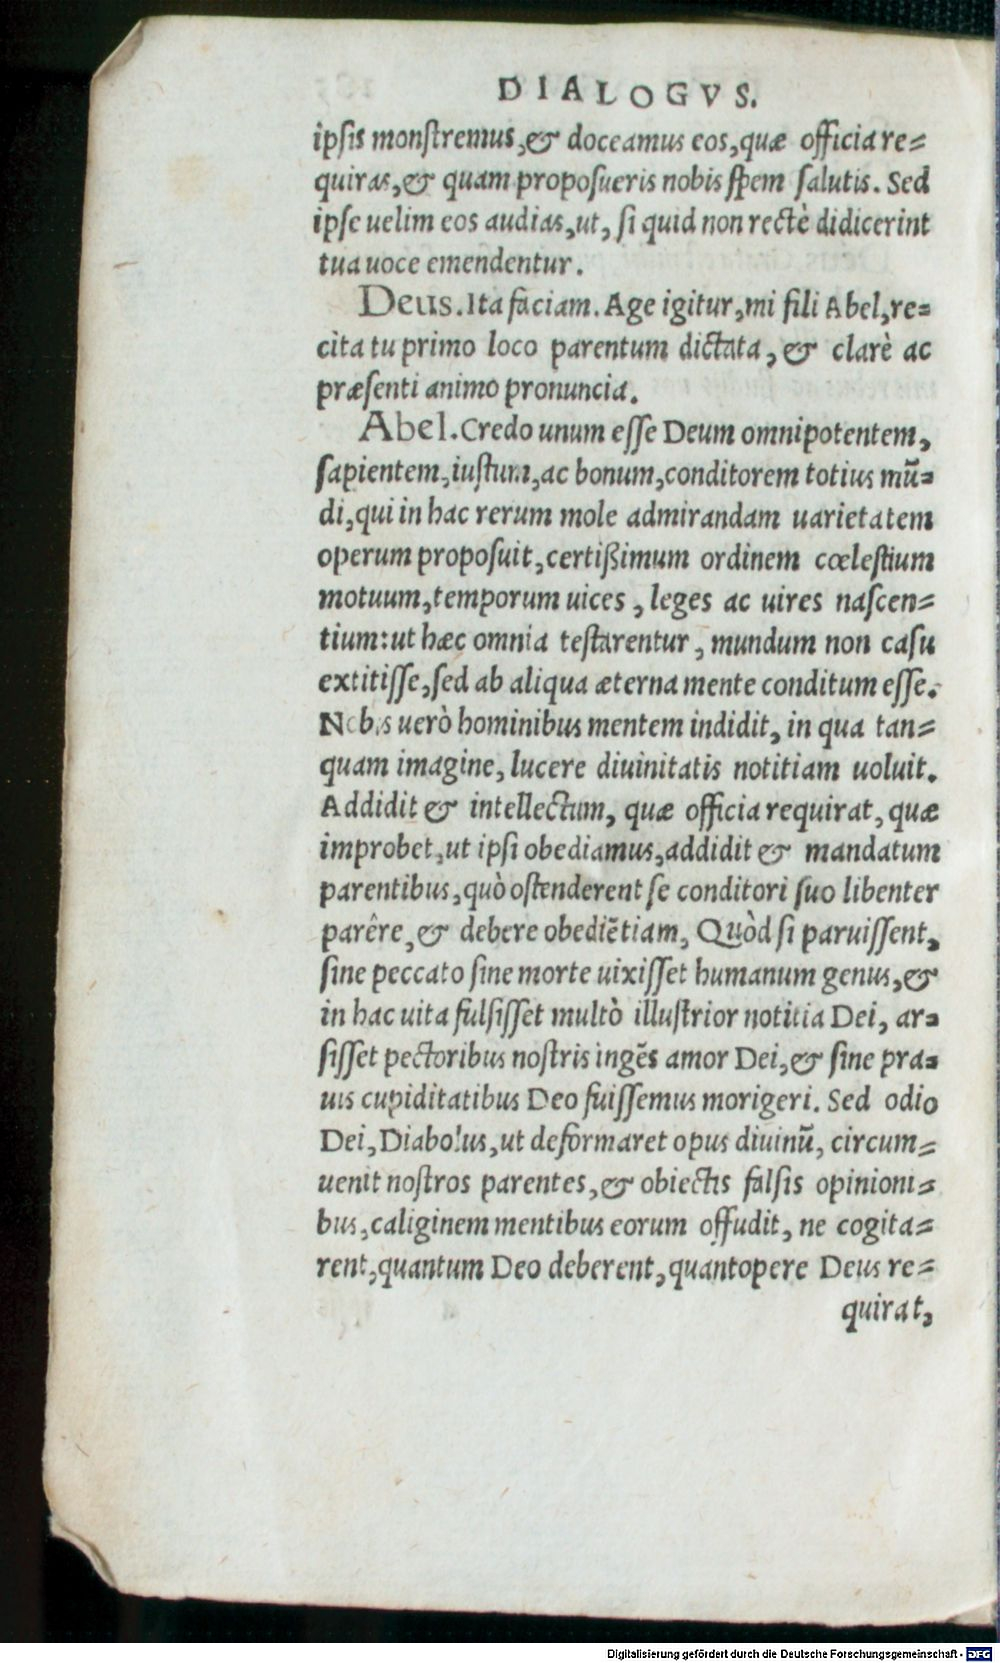 DIALOGVS.
ipsis monstremus, & doceamus eos, quæ officia re=
quiras, & quam proposueris nobis spem salutis. Sed
ipse uelim eos audias, ut, si quid non rectè didicerint
tua uoce emendentur.
Deus. Ita faciam. Age igitur, mi fili Abel, re=
cita tu primo loco parentum dictata, & clarè ac
præsenti animo pronuncia.
Abel. Credo unum esse Deum omnipotentem,
sapientem, iustum, ac bonum, conditorem totius mū=
di, qui in hac rerum mole admirandam uarietatem
operum proposuit, certißimum ordinem cœlestium
motuum, temporum uices, leges ac uires nascen=
tium: ut hæc omnia testarentur, mundum non casu
extitisse, sed ab aliqua æterna mente conditum esse.
Nobis uerò hominibus mentem indidit, in qua tan=
quam imagine, lucere diuinitatis notitiam uoluit.
Addidit & intellectum, quæ officia requirat, quæ
improbet, ut ipsi obediamus, addidit & mandatum
parentibus, quò ostenderent se conditori suo libenter
parêre, & debere obediētiam, Quòd si paruissent,
sine peccato sine morte uixisset humanum genus, &
in hac uita fulsisset multò illustrior notitia Dei, ar=
sisset pectoribus nostris ingēs amor Dei, & sine pra=
uis cupiditatibus Deo fuissemus morigeri. Sed odio
Dei, Diabolus, ut deformaret opus diuinū, circum=
uenit nostros parentes, & obiectis falsis opinioni=
bus, caliginem mentibus eorum offudit, ne cogita=
rent, quantum Deo deberent, quantopere Deus re=
quirat,
Digitalisierung gefördert durch die Deutsche Forschungsgemeinschaft - DFG